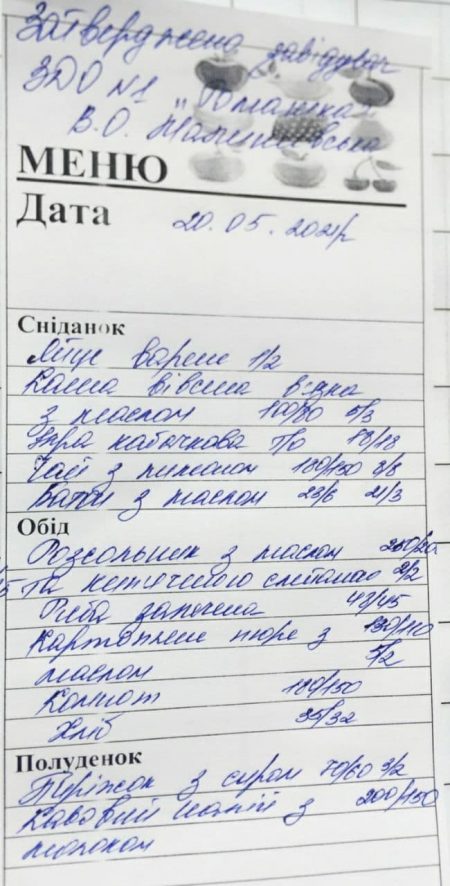 Затверджено завідувач
ЗДО №1 "Ромашка"
В.О.
МЕНЮ
Дата 20.05.2021р
Сніданок
Яйце варене 1/2
Каша вівсяна в'язка
з маслом 100/80 5/3
Ікра кабачкова п/о 78/18
Чай з лимоном 180/150 8/8
Батон з маслом 28/6 21/3
Обід
Розсольник з маслом 250/20
та сметаною 2/2
Риба запечена 48/45
Картопляне пюре з 130/110
маслом 5/2
Компот 180/150
Хліб 35/32
Полуденок
Пиріжок з сиром 70/60 3/2
Кавовий напій з 200/150
молоком